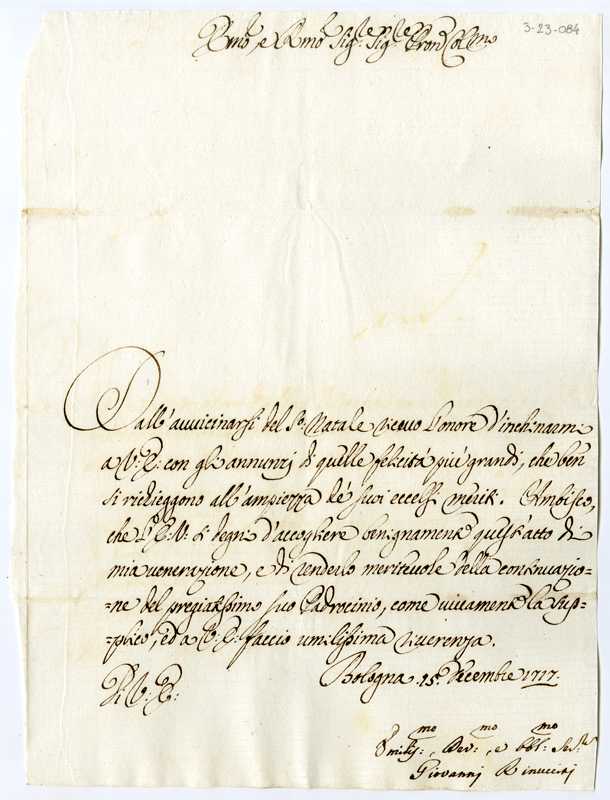 3-23-084
Emo e Rmo Sig.re Sig.re Pron Colmo
Dall'avvicinarsi del Sto. Natale ricevo l'onore d'inchinarmi
a V: E: con gli annunzj di quelle felicità più grandi, che ben
si richieggono all'ampiezza de' suoi eccelsi meriti. Ambisco,
che l'E: V: si degni d'accogliere benignamente quest'atto di
mia venerazione, e di renderlo meritevole della continuazio-
-ne del pregiatissimo suo Padrocinio, come vivamente la sup-
-plico, ed a V: E: faccio umilissima riverenza.
Di V: E:
Bologna 15. Decembre 1717.
Umilis:mo, Dev:mo, e obbl:mo Ser.re
Giovannj Rinuccinj